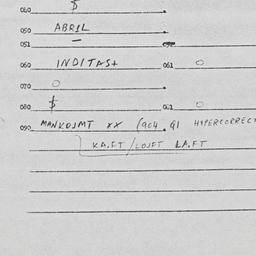 040 $
050 ABRIL
051 —
060 INDITAS+ 061 O
070 O
080 $ 081 O
090 MANKOJMT XX (904 GI HYPERCORRECT
KA.FT / LOJFT LA.FT